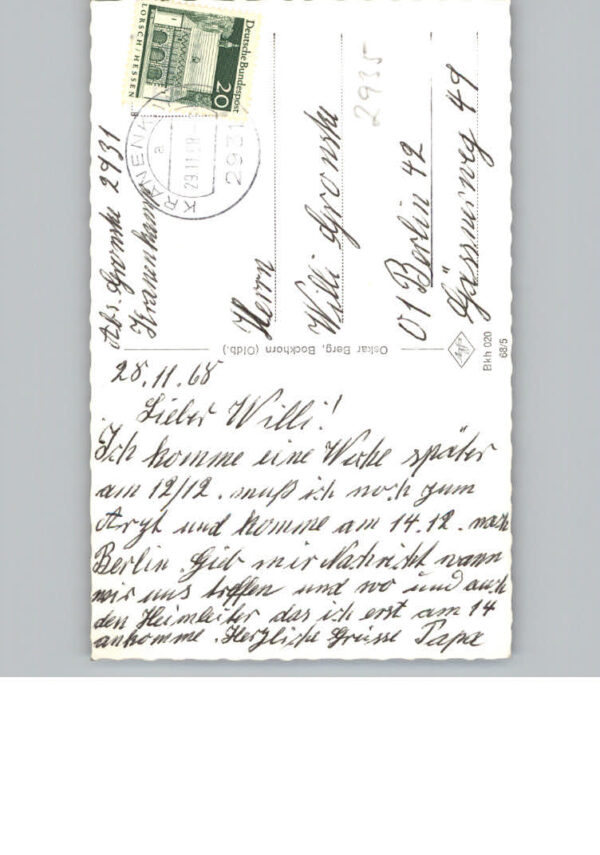 Deutsche Bundespost
20
LORSCH/HESSEN
KRANENKAMP
a
29.11.68
2931
2935
Abs. Gronske 2931
Kranenkamp
Herrn
Willi Gronske
01 Berlin 42
49
Oskar Berg, Bockhorn (Oldb.)
Agfa
Bkh 020
68/5
28.11.68
Lieber Willi!
Ich komme eine Woche später
am 12/12. muß ich noch zum
Arzt und komme am 14.12. nach
Berlin. Gieb mir Nachricht wann
wir uns treffen und wo und auch
den Heimleiter das ich erst am 14
ankomme. Herzliche Grüsse Papa